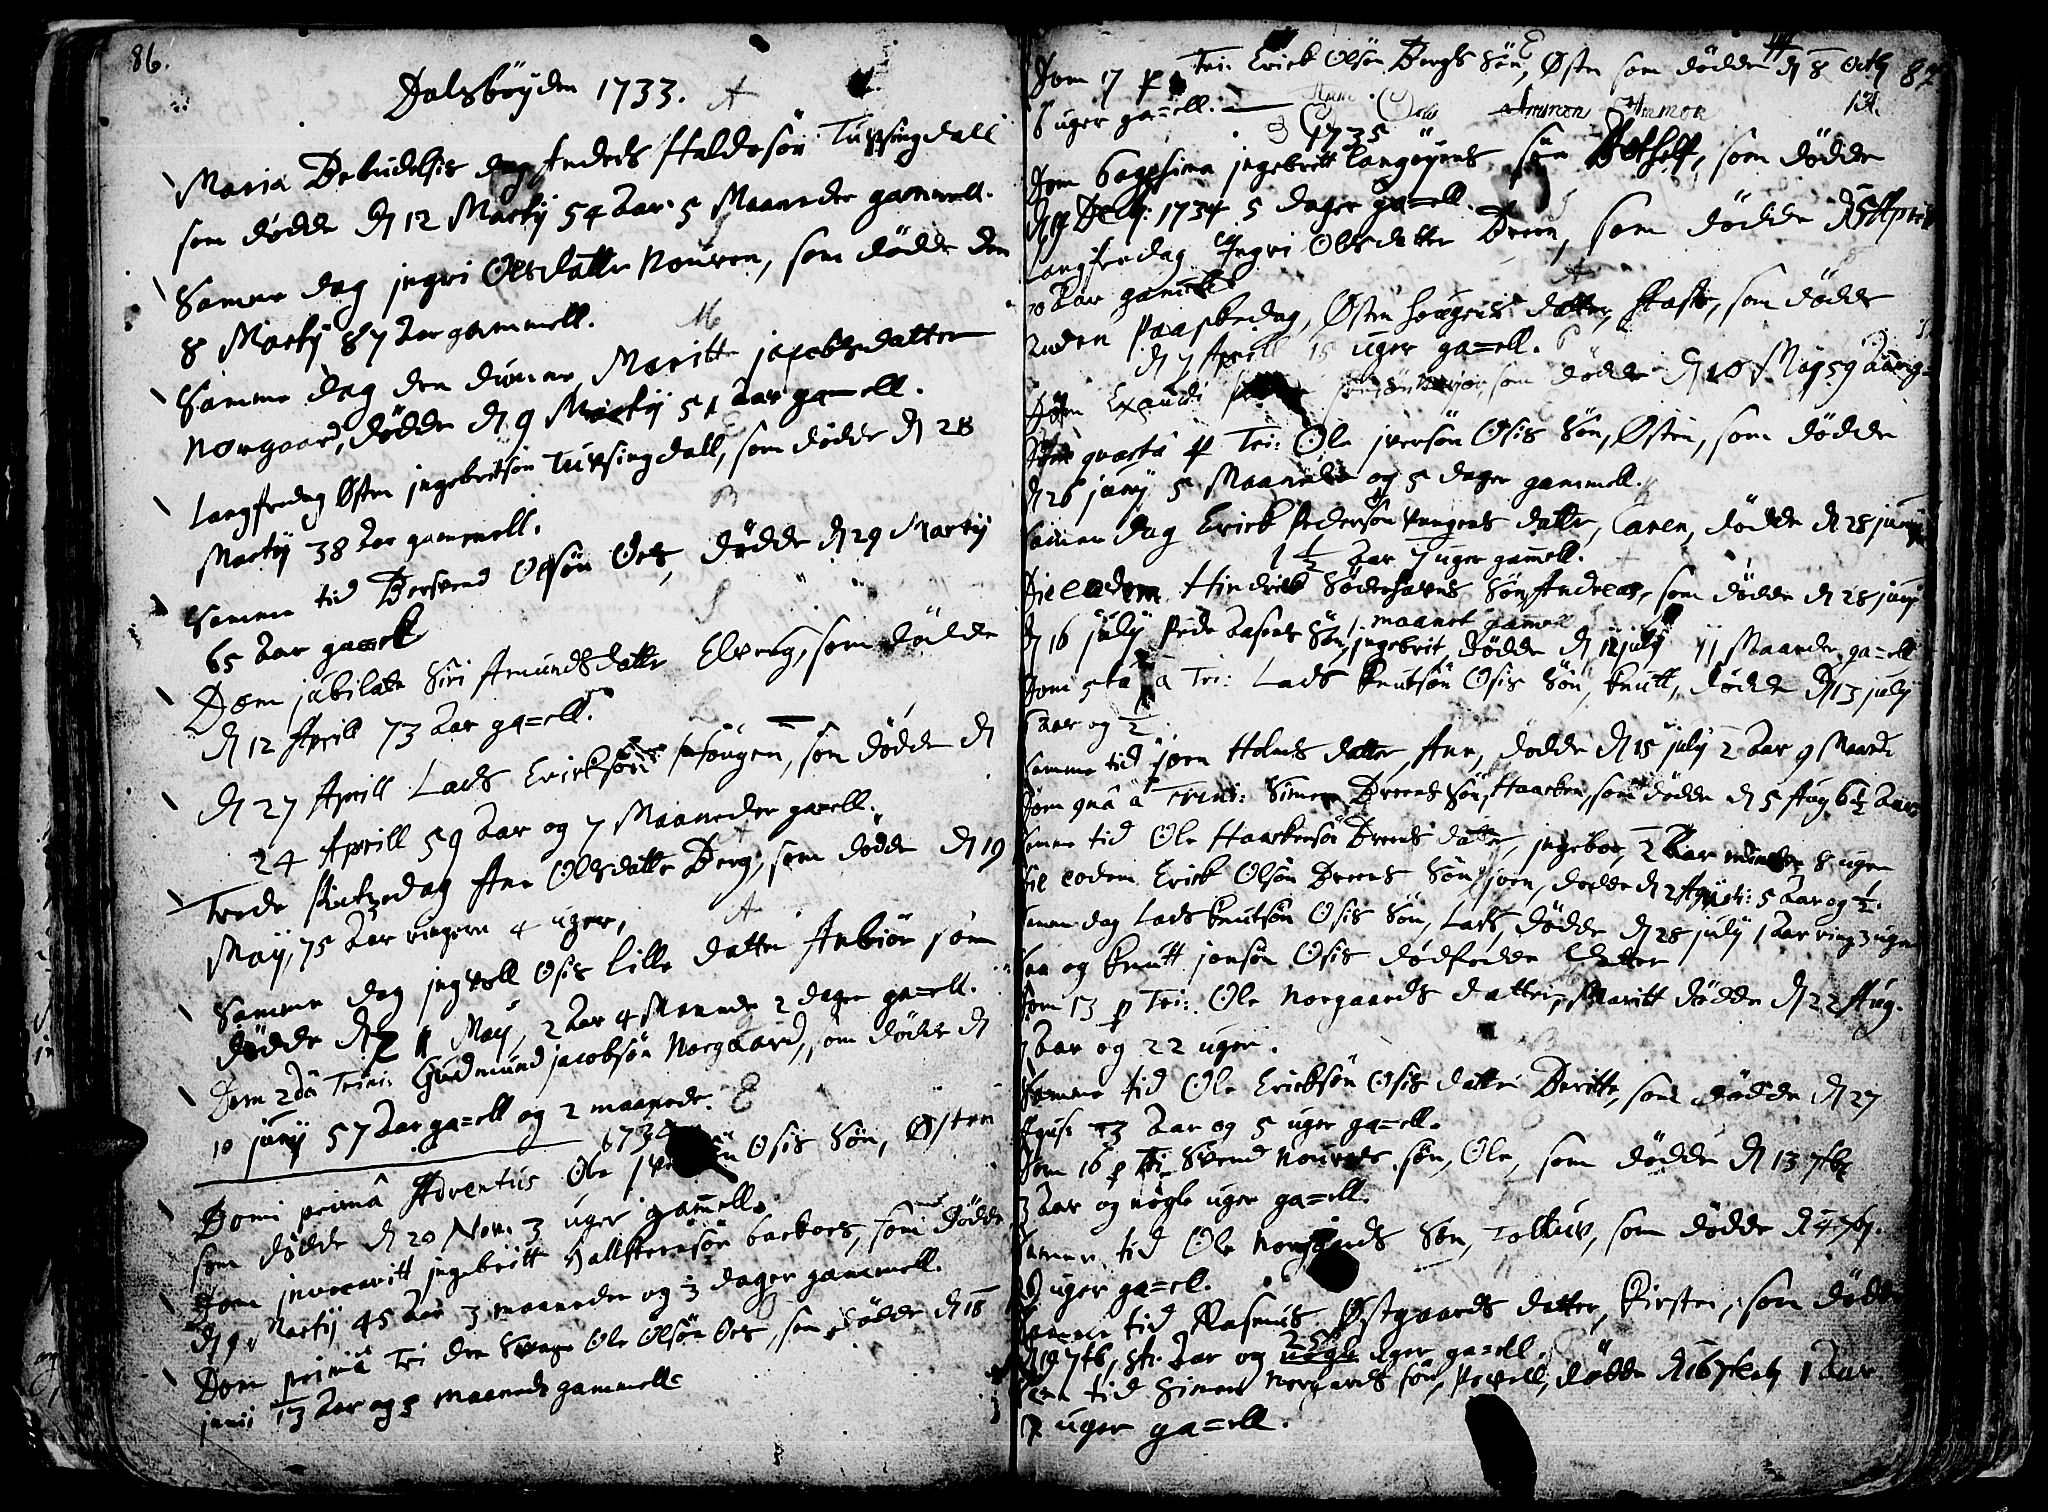 86.
Dalsbøyden 1733.
Maria Bebudelsis dag Anders Haldosøn Tufsingdall
som døde d 12 Martij 54 Aar 5 Maaneder gammell.
Samme dag jngri Olesdatter Nouren, som døde den
8 Martij 87 Aar gammell.
Samme dag den dumme Maritte jacobsdatter
Norgaard, døde d 9 Martij 51 Aar ga=ell.
Langfredag Østen jngebretsøn Tufsingdall, som døde d 28
Martij 38 Aar gammell.
Samme tid Bersvend Olsøn Oes, døde d 29 Martij
65 Aar ga=ell
Dom jubilate Siri Amundsdatter Elvseg, som døde
d 12 Aprill 73 Aar ga=ell.
d 27 Aprill Lads Ericksøn, som døde d
24 Aprill 59 Aar og 7 Maaneder ga=ell.
Trede Pintzedag Ane Olesdatter Berg, som døde d 19
Maij, 75 Aar ringere 4 uger,
Samme dag jngvoll Osis lille datter Anbiør som
døde d 21 Maij, 2 Aar 4 Maaneder 2 dager ga=ell.
Dom 2dâ Trini: Gudmund jacobsøn Norgaard, som døde d
10 junij 57 Aar ga=ell og 2 maaneder.
1734
Domi primâ Adventus Ole Osis Søn, Østen
som døde d 20 Nov: 3 uger gammell.
Dom jnvocavitt jngebritt Hallsteensøn backoes, som døde
d 9 Martij 45 Aar 3 maaneder og 3 dager gammell.
Dom primâ Tri den Svage Ole Olsøn Oes, som døde d 18
junii 13 Aar og 5 maaneds gammell
87
Dom 17 p Tri: Erick Olsøn Bergs Søn, Østen som døde d 8 Octb
6 uger ga=ell.
1735
Dom 6agesima jngebritt Langøyens søn Botholf, som døde
d 19 Decb: 1734 5 dager ga=ell.
Langfredag Jngri Olesdatter Breen, som døde d 5 Aprill
70 Aar gammell
Anden Paaskedag, Østen Hougens datter, som døde
d 7 Aprill 15 uger ga=ell.
Dom Exaudi som døde d 10 Maij 59 Aar
Dom quarta p Tri: Ole jversøn Osis Søn, Østen, som døde
d 26 junij 5 Maaneder og 5 dager gammell.
Samme dag Erick Pedersøn Vangens datter, Caren, døde d 28 junij
1 ½ Aar 7 uger gamell.
Die eodem Hindrick Søderhavns Søn, Andreas, som døde d 28 junij
1. maanet gammel
d 16 julij Peder Aasens Søn, jngebrit, døde d 12 julij 11 Maander ga=ell
Dom 5ta â Tri: Lads Knutsøn Osis Søn, Knutt, døde d 13 julij
6 aar og ½
Samme tid joen Holms datter, Ane, døde d 15 julij 2 Aar 9 Maand:
Dom 9nâ â Trini: Simen Breens Søn, Haacken, som døde d 5 Aug 6½ Aar
Samme tid Ole Haackensøn Breens datter, jngebor, 2 Aar mindre 8 uger
Die eodem Erick Olsøn Breens Søn joen, døde d 2 Agusti: 5 Aar og ½.
Samme dag Lads Knutsøn Osis Søn, Lads, døde d 28 julij 1 Aar ring 3 uger
Saa og Knutt jonsøn Osis dødfødde datter
Dom 13 p Tri: Ole Norgaards datter, Maritt døde d 22 Aug.
Aar og 22 uger.
Samme tid Ole Ericksøn Osis datter Beritte, som døde d 27
Agus: 3 Aar og 5 uger ga=ell.
Dom 16 p Tri Svend Nourens søn, Ole, som døde d 13 7tbr
3 Aar og nogle uger ga=ell.
Samme tid Ole Norgaards Søn, Tolluv, som døde d 4 7b.
uger ga=ell.
Samme tid Rasmus Østgaards datter, Kirsten, som døde
d 19 7tb, Aar og 25 uger ga=ell.
Samme tid Simen Norgaards søn, Povell, døde d 16 7tb 1 Aar
7 uger ga=ell.